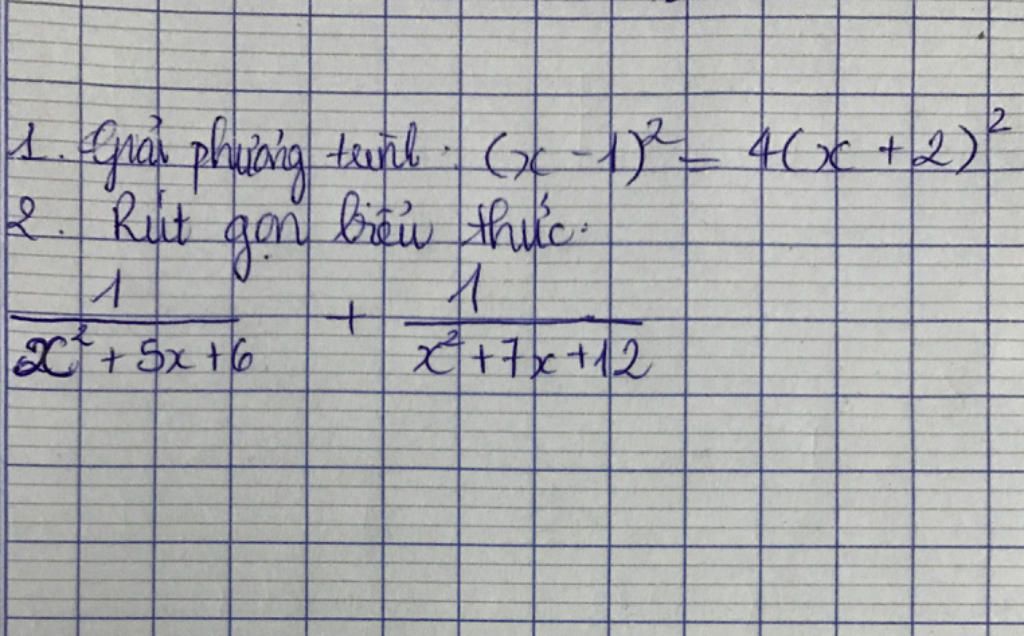 1. Giải phương trình: (x - 1)² = 4(x + 2)²
2. Rút gọn biểu thức:
1/(x² + 5x + 6) + 1/(x² + 7x + 12)